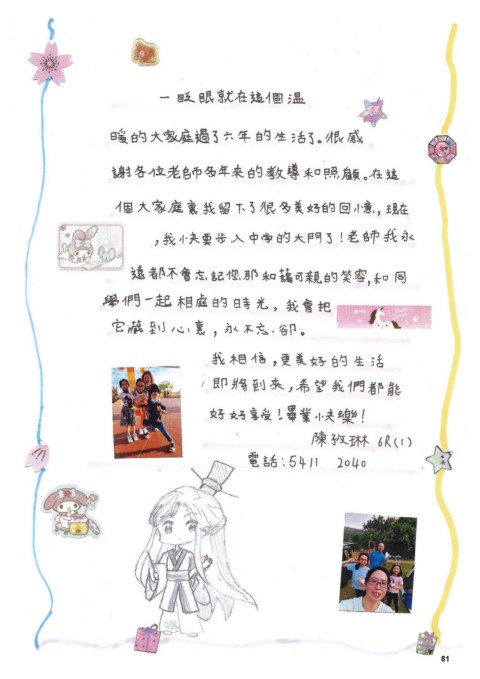 一眨眼就在這個溫
暖的大家庭過了六年的生活了。很感
謝各位老師多年來的教導和照顧。在這
個大家庭裏我留下了很多美好的回憶，現在
，我快要步入中學的大門了！老師我永
遠都不會忘記您那和藹可親的笑容，和同
學們一起相處的時光，我會把
它藏到心裏，永不忘卻。
我相信，更美好的生活
即將到來，希望我們都能
好好享受！畢業快樂！
陳孜琳 6R(1)
電話：5411 2040
81